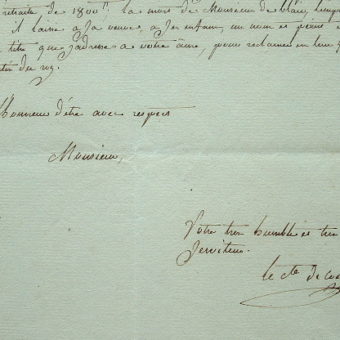 retraite de 1800 tt, la mort de Monsieur de
il laisse a sa veuve, a ses enfans, un nom et
titre que j'adresse a votre ame, pour reclamer en leur
du roy.
l'honneur d'être avec respect
Monsieur,
Votre tres humble et tres
Serviteur.
le cte de